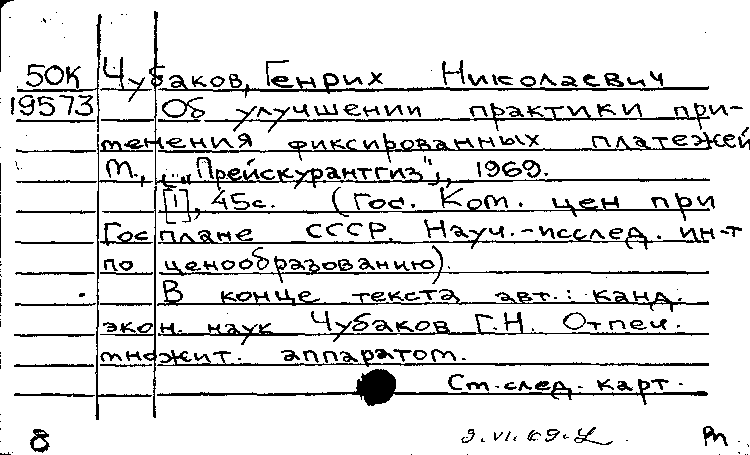 50К Чубаков, Генрих Николаевич
19573 Об улучшении практики при-
менения фиксированных платежей
М., „Прейскурантгиз", 1969.
[1], 45с. (Гос. Ком. цен при
Госплане СССР. Науч.-исслед. ин-т
по ценообразованию).
В конце текста авт.: канд.
экон. наук Чубаков Г.Н. Отпеч.
множит. аппаратом.
См. след. карт.
8 9.VI.69.